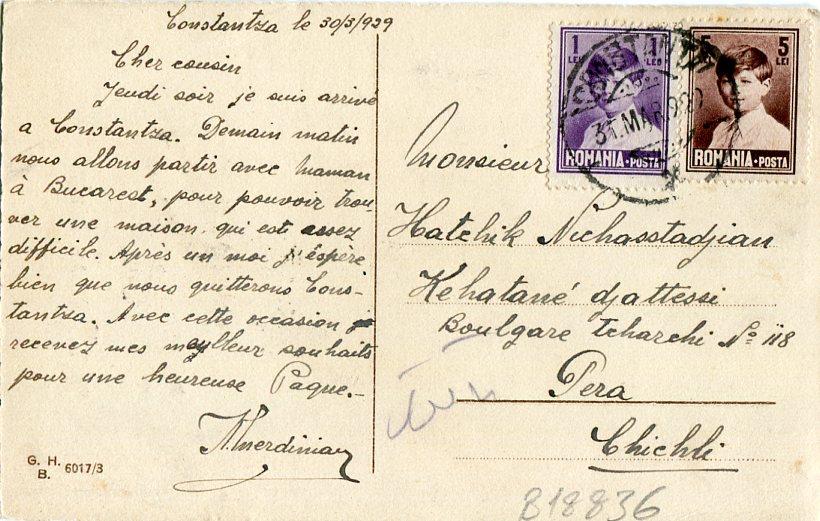 Constantza le 30/3/929
Cher cousin
Jeudi soir je suis arrivé
a Constantza. Demain matin
nous allons partir avec maman
à Bucarest, pour pouvoir trou-
ver une maison qui est assez
difficile. Après un moi j'éspère
bien que nous quitterons Cons-
tantza. Avec cette occasion je
recevez mes meylleur souhaits
pour une heureuse Paque.-
G. H.
B. 6017/3
1 LEU 1 LEU
ROMANIA • POSTA
5 LEI 5 LEI
ROMANIA • POSTA
CONSTANTA
31.MAR 929
Monsieur
Hatchik Nichasstadjian
Kehatané djattessi
Boulgare tcharchi No 118
Pera
Chichli
B18836